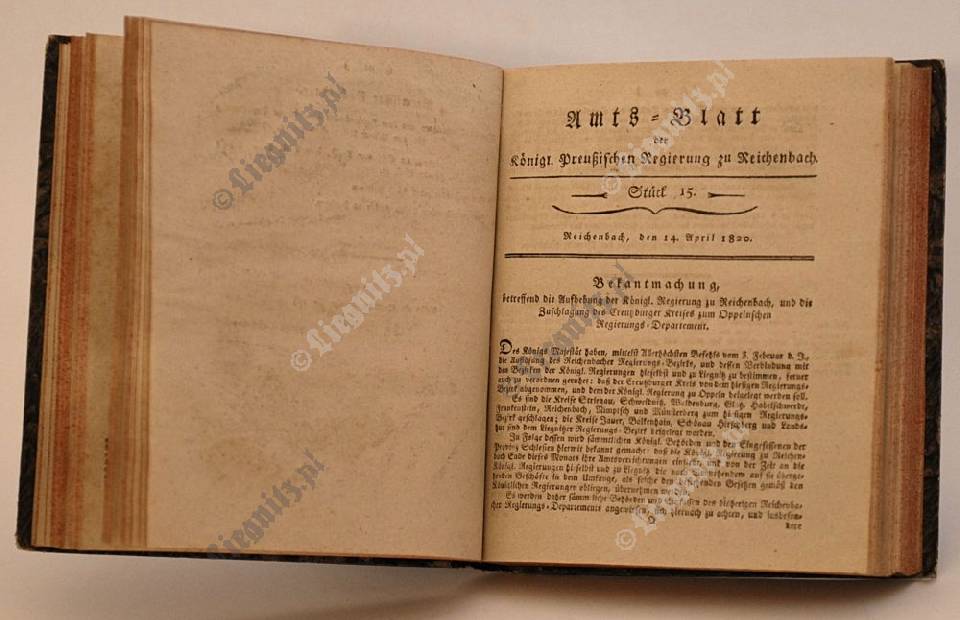 Amts-Blatt
der
Königl. Preußischen Regierung zu Reichenbach.
Stück 15.
Reichenbach, den 14. April 1820.
Bekantmachung,
betreffend die Aufhebung der Königl. Regierung zu Reichenbach, und die
Zuschlagung des Creutzburger Kreises zum Oppelnschen
Regierungs-Departement.
Des Königs Majestät haben, mittelst Allerhöchsten Befehls vom 3. Februar d. J.,
die Auflösung des Reichenbacher Regierungs-Bezirks, und dessen Verbindung mit
den Bezirken der Königl. Regierungen hieselbst und zu Liegnitz zu bestimmen, ferner
auch zu verordnen geruhet: daß der Creutzburger Kreis von dem hiesigen Regierungs-
Bezirk abgenommen, und dem der Königl. Regierung zu Oppeln beigelegt werden soll.
Es sind die Kreise Striegau, Schweidnitz, Waldenburg, Glatz, Habelschwerdt,
Frankenstein, Reichenbach, Nimptsch und Münsterberg zum hiesigen Regierungs-
Bezirk geschlagen; die Kreise Jauer, Bolkenhain, Schönau Hirschberg und Lands-
hut sind dem Liegnitzer Regierungs-Bezirk beigelegt werden.
Zu Folge dessen wird sämmtlichen Königl. Behörden und den Eingesessenen der
Provinz Schlesien hiermit bekannt gemacht: daß die Königl. Regierung zu Reichen-
bach Ende dieses Monats ihre Amtsverrichtungen einstellt und von der Zeit an die
Königl. Regierungen hieselbst und zu Liegnitz die auf sie überge-
henden Geschäfte in dem Umfange, als solche den bestehenden Gesetzen gemäß den
Königlichen Regierungen obliegen, übernehmen
Es werden daher sämmtliche Behörden und Einsassen des bisherigen Reichenba-
cher Regierungs-Departements angewiesen, sich hiernach zu achten, und insbeson-
Q
dere
© Liegnitz.pl
© Liegnitz.pl
© Liegnitz.pl
© Liegnitz.pl
© Liegnitz.pl
© Liegnitz.pl